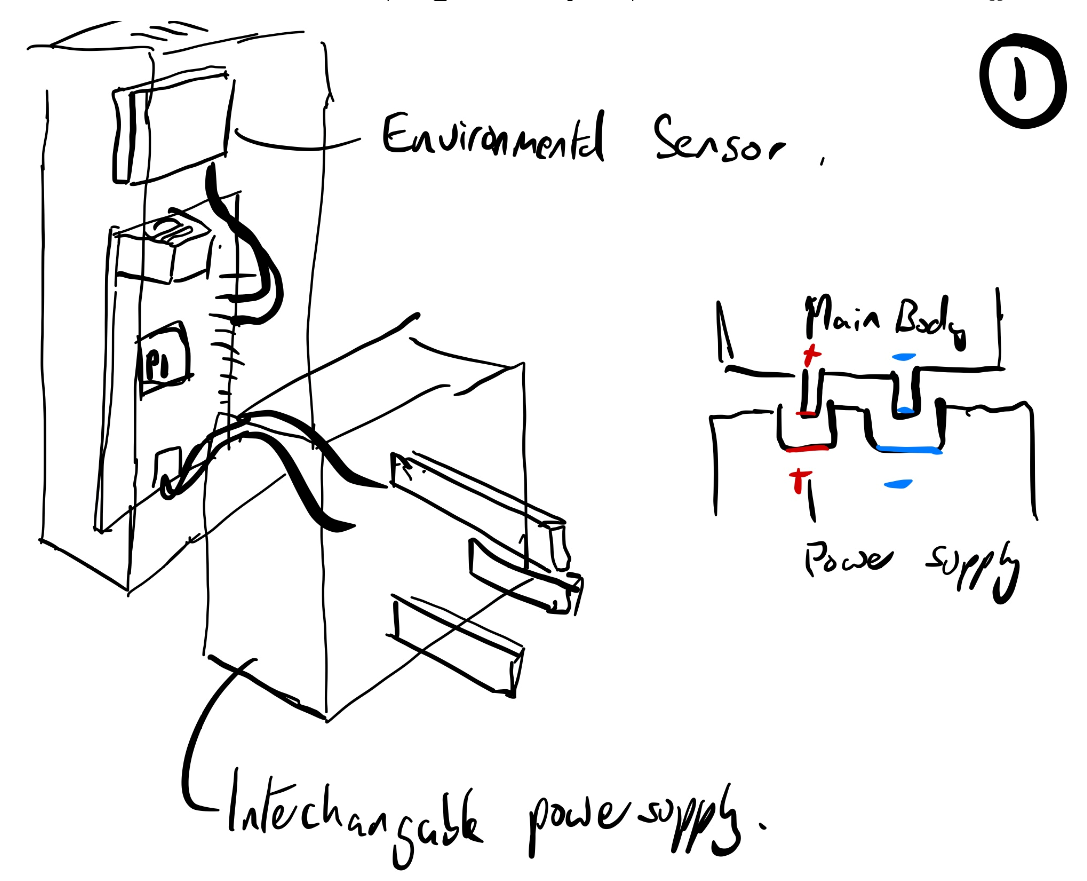 1
Environmental Sensor.
PI
Main Body
+ -
+ -
Power supply
Interchangable power supply.